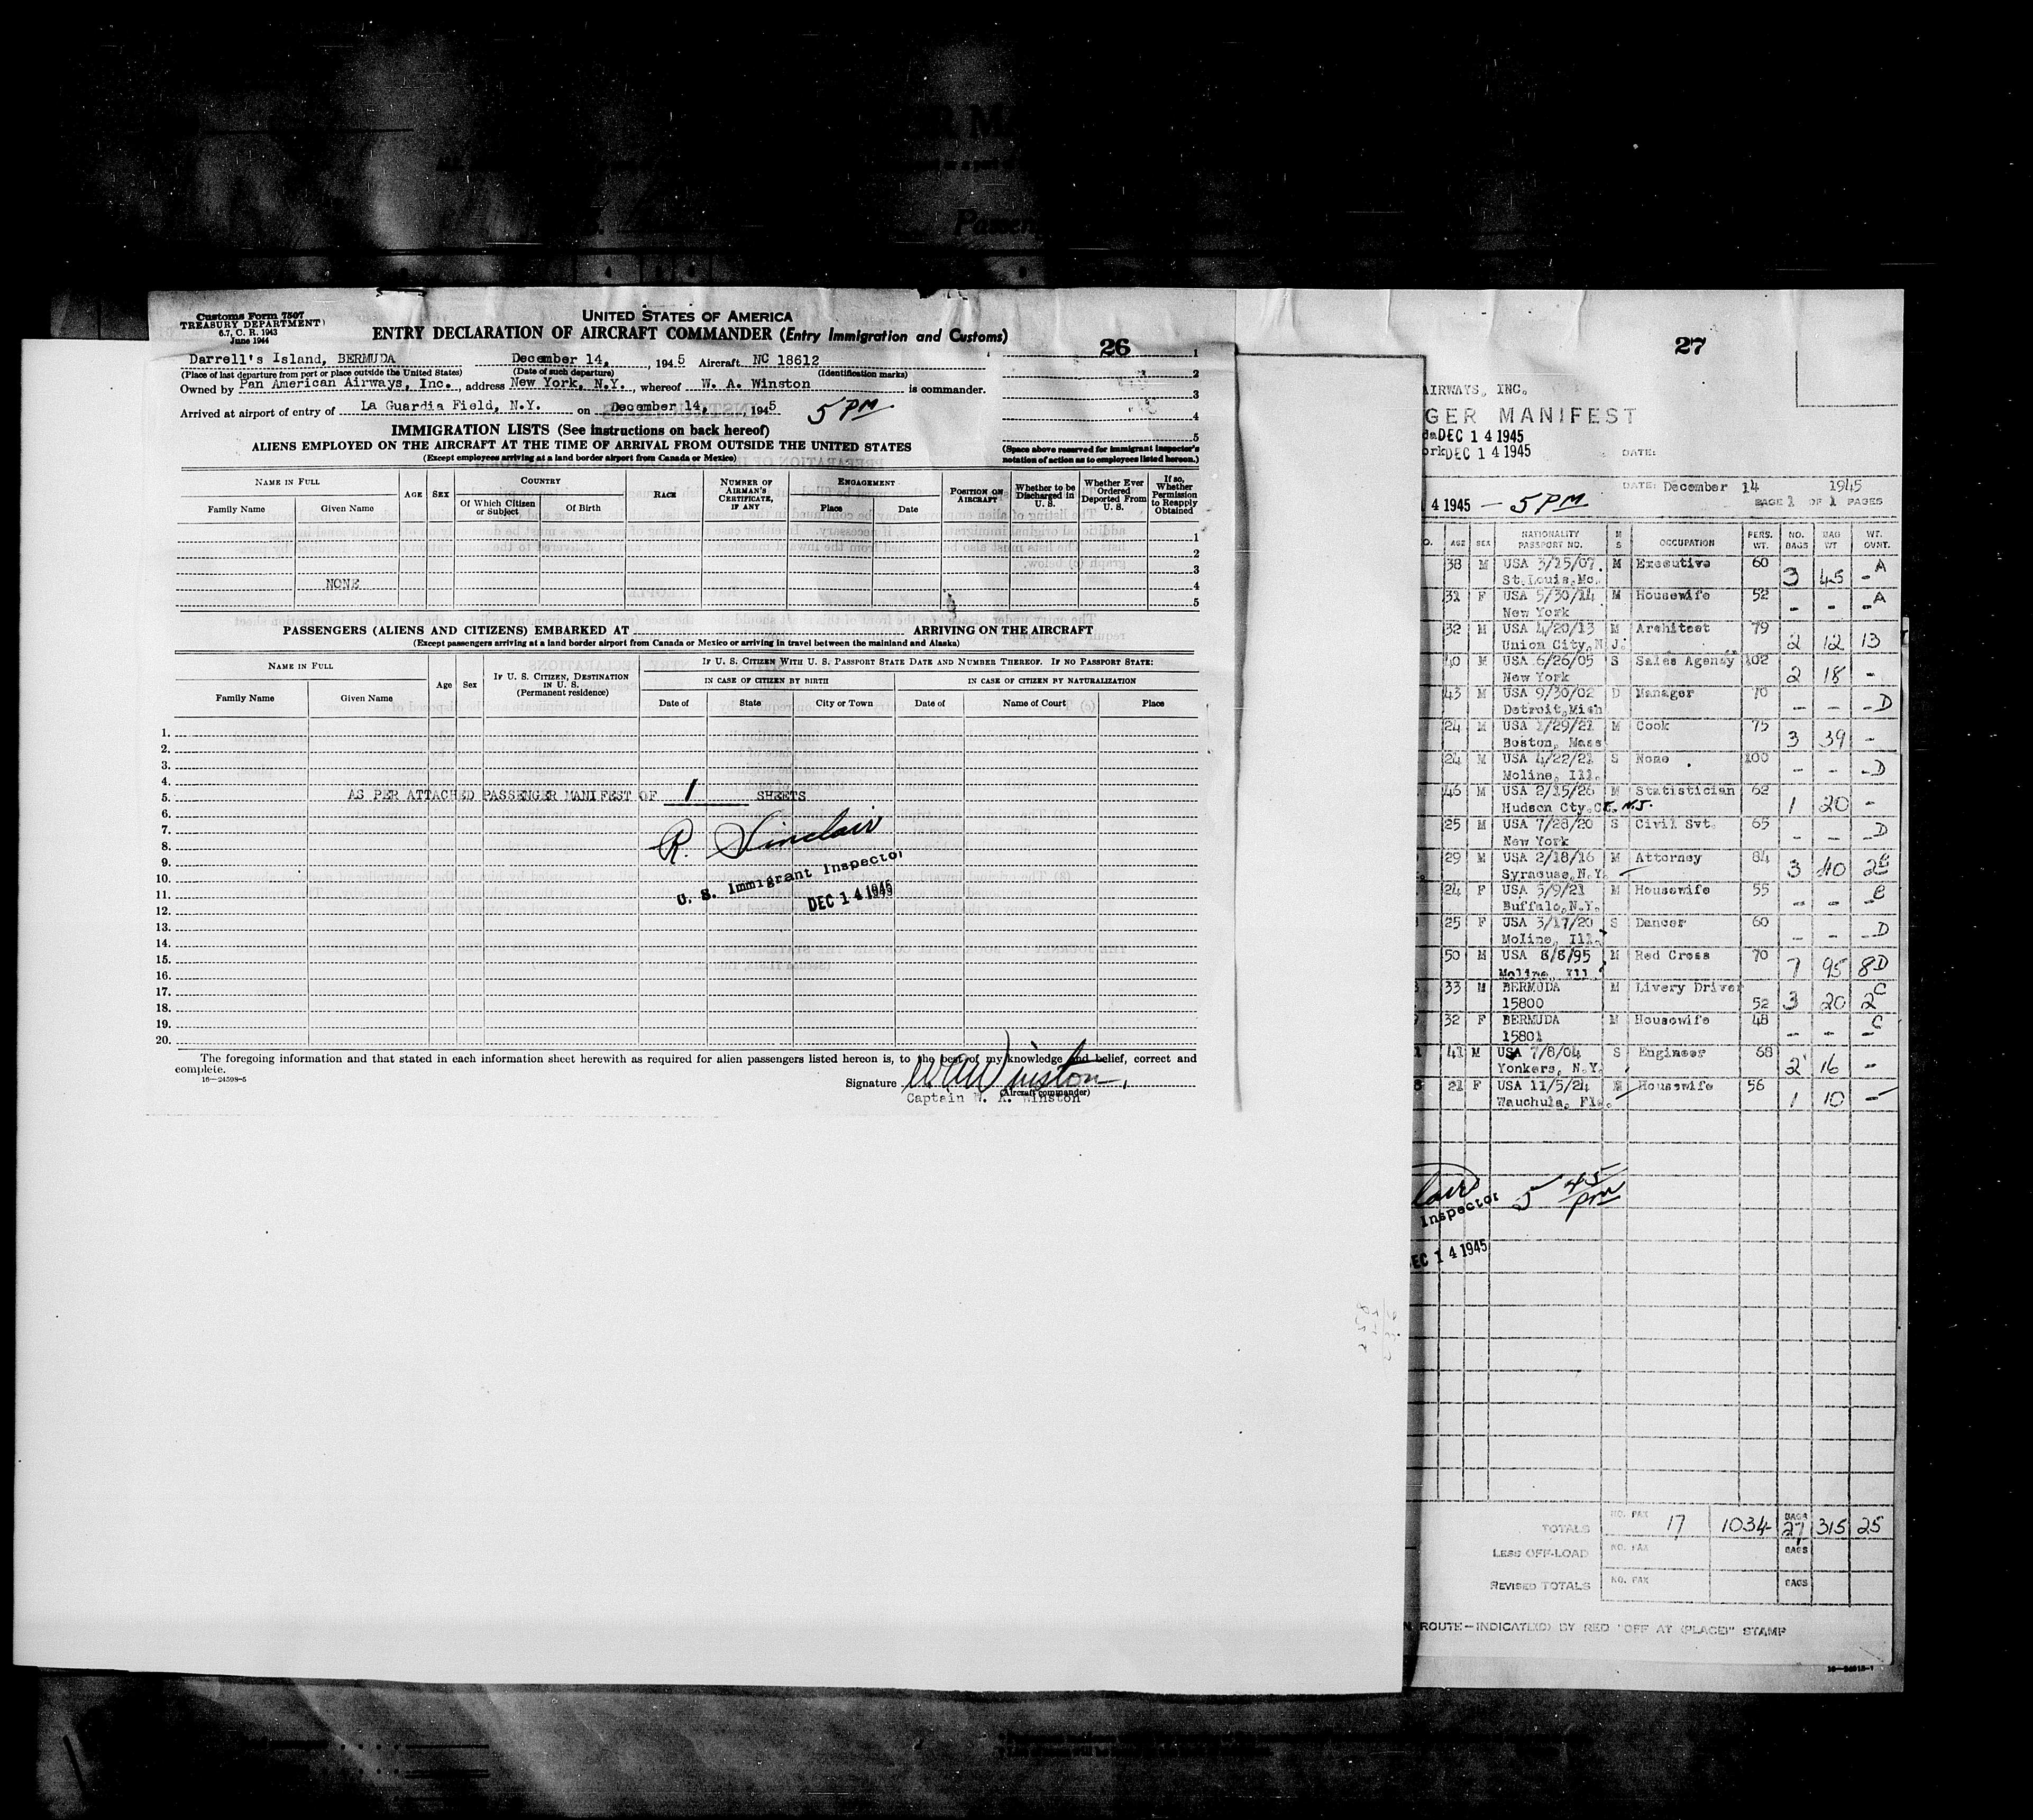 Customs Form 7507
TREASURY DEPARTMENT
6.7, C. R. 1943
June 1944
UNITED STATES OF AMERICA
ENTRY DECLARATION OF AIRCRAFT COMMANDER (Entry Immigration and Customs)
26
Darrell's Island, BERMUDA December 14, 1945 Aircraft NC 18612
(Place of last departure from port or place outside the United States) (Date of such departure) (Identification marks)
Owned by Pan American Airways, Inc., address New York, N.Y., whereof W. A. Winston is commander.
Arrived at airport of entry of La Guardia Field, N.Y. on December 14, 1945 5 PM
1
2
3
4
5
(Space above reserved for immigrant inspector's notation of action as to employees listed hereon.)
IMMIGRATION LISTS (See instructions on back hereof)
ALIENS EMPLOYED ON THE AIRCRAFT AT THE TIME OF ARRIVAL FROM OUTSIDE THE UNITED STATES
(Except employees arriving at a land border airport from Canada or Mexico)
NAME IN FULL
Family Name
Given Name
AGE
SEX
COUNTRY
Of Which Citizen or Subject
Of Birth
RACE
NUMBER OF AIRMAN'S CERTIFICATE, IF ANY
ENGAGEMENT
Place
Date
POSITION ON AIRCRAFT
Whether to be Discharged in U. S.
Whether Ever Ordered Deported From U. S.
If so, Whether Permission to Reapply Obtained
1
2
3
NONE 4
5
PASSENGERS (ALIENS AND CITIZENS) EMBARKED AT ARRIVING ON THE AIRCRAFT
(Except passengers arriving at a land border airport from Canada or Mexico or arriving in travel between the mainland and Alaska)
NAME IN FULL
Family Name
Given Name
Age
Sex
IF U. S. CITIZEN, DESTINATION IN U. S.
(Permanent residence)
IF U. S. CITIZEN WITH U. S. PASSPORT STATE DATE AND NUMBER THEREOF. IF NO PASSPORT STATE:
IN CASE OF CITIZEN BY BIRTH
IN CASE OF CITIZEN BY NATURALIZATION
Date of
State
City or Town
Date of
Name of Court
Place
1.
2.
3.
4.
5. AS PER ATTACHED PASSENGER MANIFEST OF 1 SHEETS
6.
7.
8. R. Sinclair
9.
10. U. S. Immigrant Inspector
11. DEC 14 1945
12.
13.
14.
15.
16.
17.
18.
19.
20.
The foregoing information and that stated in each information sheet herewith as required for alien passengers listed hereon is, to the best of my knowledge and belief, correct and
complete.
16—24598-5
Signature W A Winston
(Aircraft commander)
Captain W. A. Winston
27
AIRWAYS, INC.
GER MANIFEST
DEC 14 1945
DEC 14 1945 DATE:
DATE: December 14 1945
4 1945 — 5 PM PAGE 1 OF 1 PAGES
AGE SEX NATIONALITY PASSPORT NO. M S OCCUPATION PERS. WT. NO. BAGS BAG WT WT. OVNT.
38 M USA 3/15/07 M Executive 60
St. Louis, Mo. 3 45 - A
31 F USA 5/30/14 M Housewife 52
New York - - - A
32 M USA 4/20/13 M Architect 79
Union City, N J. 2 12 13
40 M USA 6/26/05 S Sales Agency 102
New York 2 18 -
43 M USA 9/30/02 D Manager 70
Detroit, Mich - - - D
24 M USA 1/29/21 M Cook 75
Boston, Mass 3 39 -
24 M USA 4/22/21 S None 100
Moline, Ill. - - - D
46 M USA 2/15/26 M Statistician 62
Hudson Cty. Ct. N.J. 1 20 -
25 M USA 7/28/20 S Civil Svt. 65
New York - - - D
29 M USA 2/18/16 M Attorney 84
Syracuse, N.Y. 3 40 2
24 F USA 5/9/21 M Housewife 55
Buffalo, N.Y. - - -
25 F USA 3/17/20 S Dancer 60
Moline, Ill. - - - D
50 M USA 8/8/95 M Red Cross 70
Moline, Ill 7 95 8 D
33 M BERMUDA M Livery Driver
15800 52 3 20 2 C
32 F BERMUDA M Housewife 48
15801 - - - C
41 M USA 7/8/04 S Engineer 68
Yonkers, N.Y. 2 16 -
21 F USA 11/5/24 M Housewife 56
Wauchula, Fla. 1 10 -
lair 5 45 pm
Inspector
DEC 14 1945
TOTALS NO. PAX 17 1034 BAGS 27 315 25
LESS OFF-LOAD NO. PAX BAGS
REVISED TOTALS NO. PAX BAGS
ROUTE—INDICAT(ED) BY RED "OFF AT (PLACE)" STAMP